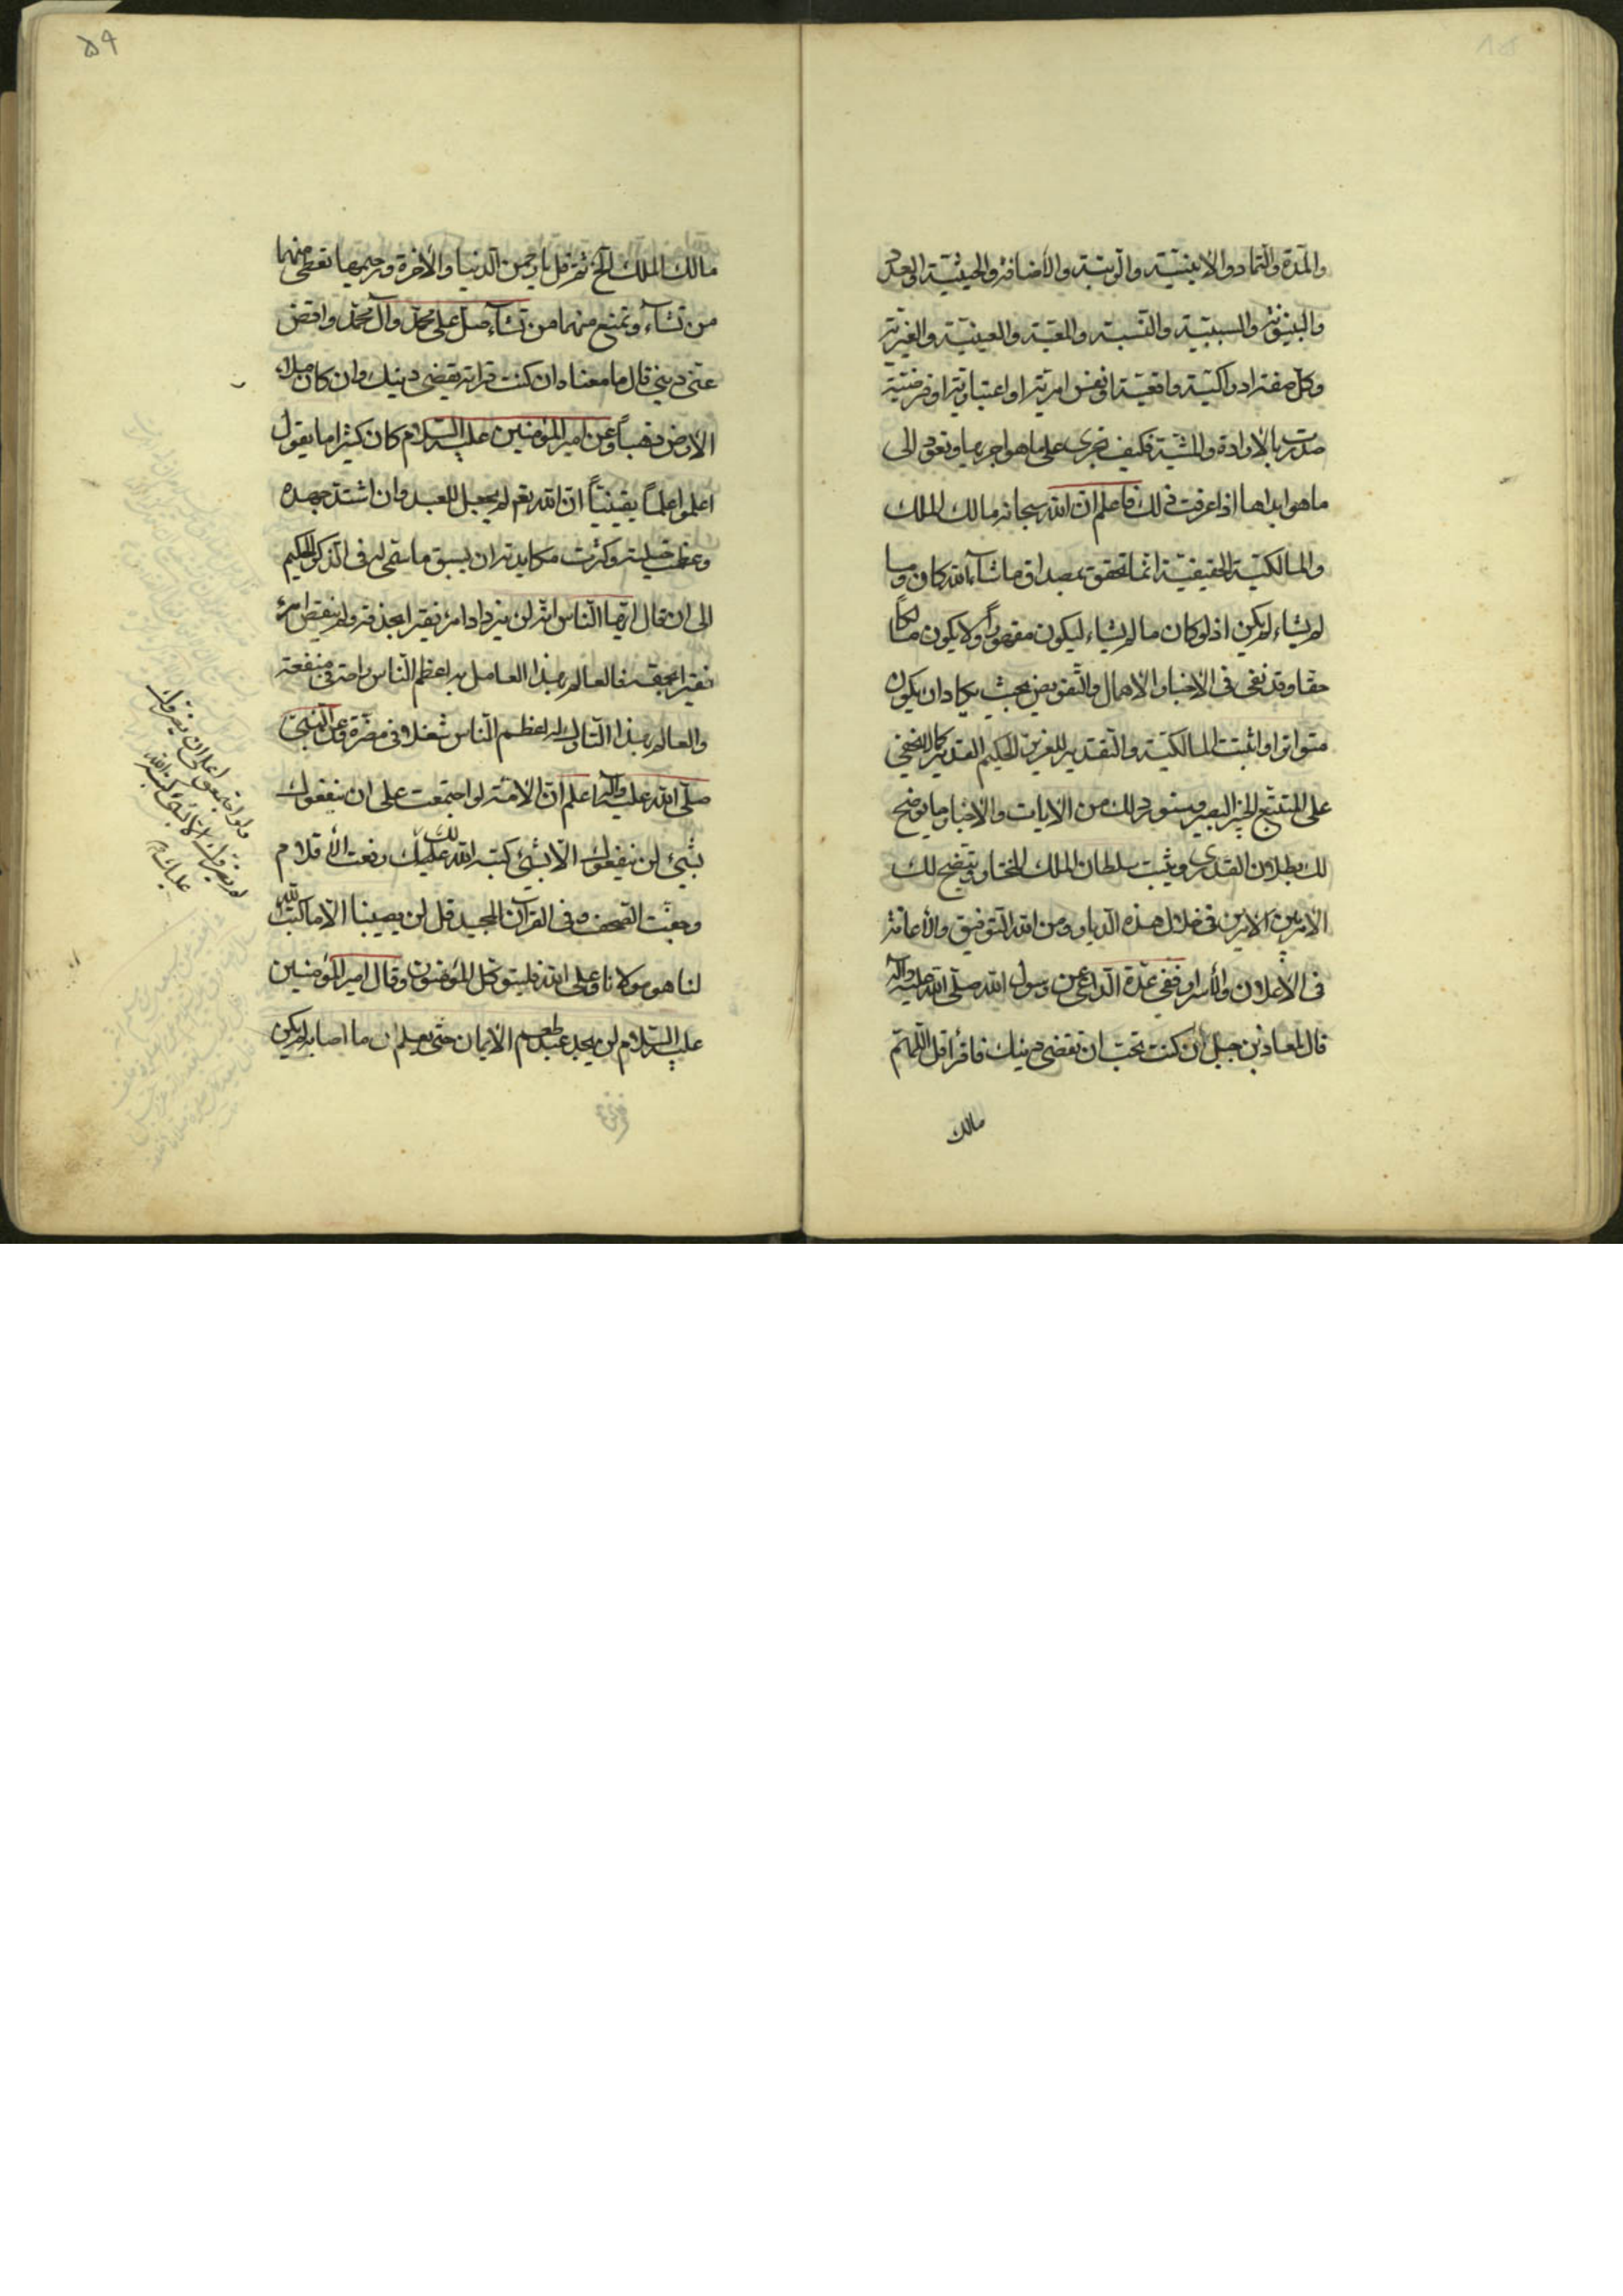 والمدة والتماد والاينيّة والرينية والأضافة والحيثيّة الى بعد
والبينونة والسببيّة والنسبة والمعيّة والعينيّة والغيريّة
وكل صفة ادراكيّة واقعيّة او نفس امريّة او اعتباريّة او فرضيّة
صدرت بالارادة والمشيّة فكيف تجرى على ما هو اجريها وتعود الى
ما هو ابداها اذا عرفت ذلك فاعلم ان الله سبحانه مالك الملك
والمالكيّة الحقيقيّة انما تحقق بمصداق ما شاء الله كان وما
لم يشاء لم يكن اذ لو كان ما لم يشاء ليكون مقهوراً ولا يكون مالكاً
حقا وقد نفى فى الاخبار الاهمال والتفويض بحيث يكاد ان يكون
متواترا واثبت المالكيّة والتقدير للعزيز الحكيم القدير كما لا يخفى
على المتتبع الخبير البصير وسنورد لك من الايات والاخبار ما يوضح
لك بطلان القدرى ويثبت سلطان الملك المختار ويتضح لك
الامر بين الامرين فى خلال هذه الديار ومن الله التوفيق والأعانة
فى الأعلان والأسرار ففى عدّة الداعى عن رسول الله صلّى الله عليه وآله
قال لمعاذ بن جبل أن كنت تحبّ ان تقضى دينك فاقرأ قل اللهمّ
مالك
۵۹
مالك الملك الخ ثم قل يا رحمن الدنيا والأخرة ورحيمهما تعطى منهما
من تشاء وتمنع منهما من تشاء صلّ على محمّد وآل محمّد واقض
عنّى دينى قال ما معناه ان كنت قرأته يقضى دينك وان كان ملاء
الارض ذهباً وعن امير المؤمنين عليه السلام كان كثيرا ما يقول
اعلموا علماً يقينيّاً انّ الله تعم لم يجعل للعبد وان اشتدّ جهده
وعظمت حيلته وكثرت مكايدته ان يسبق ما سمّى له فى الذكر الحكيم
الى ان قال ايّها الناس انّه لن يزداد امرء نقيرا بحذقه ولم ينقص امرء
نقيرا بحمقه فالعالم بهذا العامل به اعظم الناس راحة فى منفعته
والعالم بهذا التارك له اعظم الناس شغلا فى مضرّة وعن النبى
صلّى الله عليه وآله اعلم انّ الامّة لو اجتمعت على ان ينفعوك
بشىء لن ينفعوك الّا بشىء كتبه الله لك عليك رفعت الأقلام
وجفّت الصحف وفى القرآن المجيد قل لن يصيبنا الّا ما كتب الله
لنا هو مولانا وعلى الله فليتوكّل المؤمنون وقال امير المؤمنين
عليه السلام لن يجد عبد طعم الأيمان حتى يعلم ان ما اصابه لم يكن
ولو اجتمعوا على ان يضروك
لم يضروك الا بشىء كتبه الله
عليك